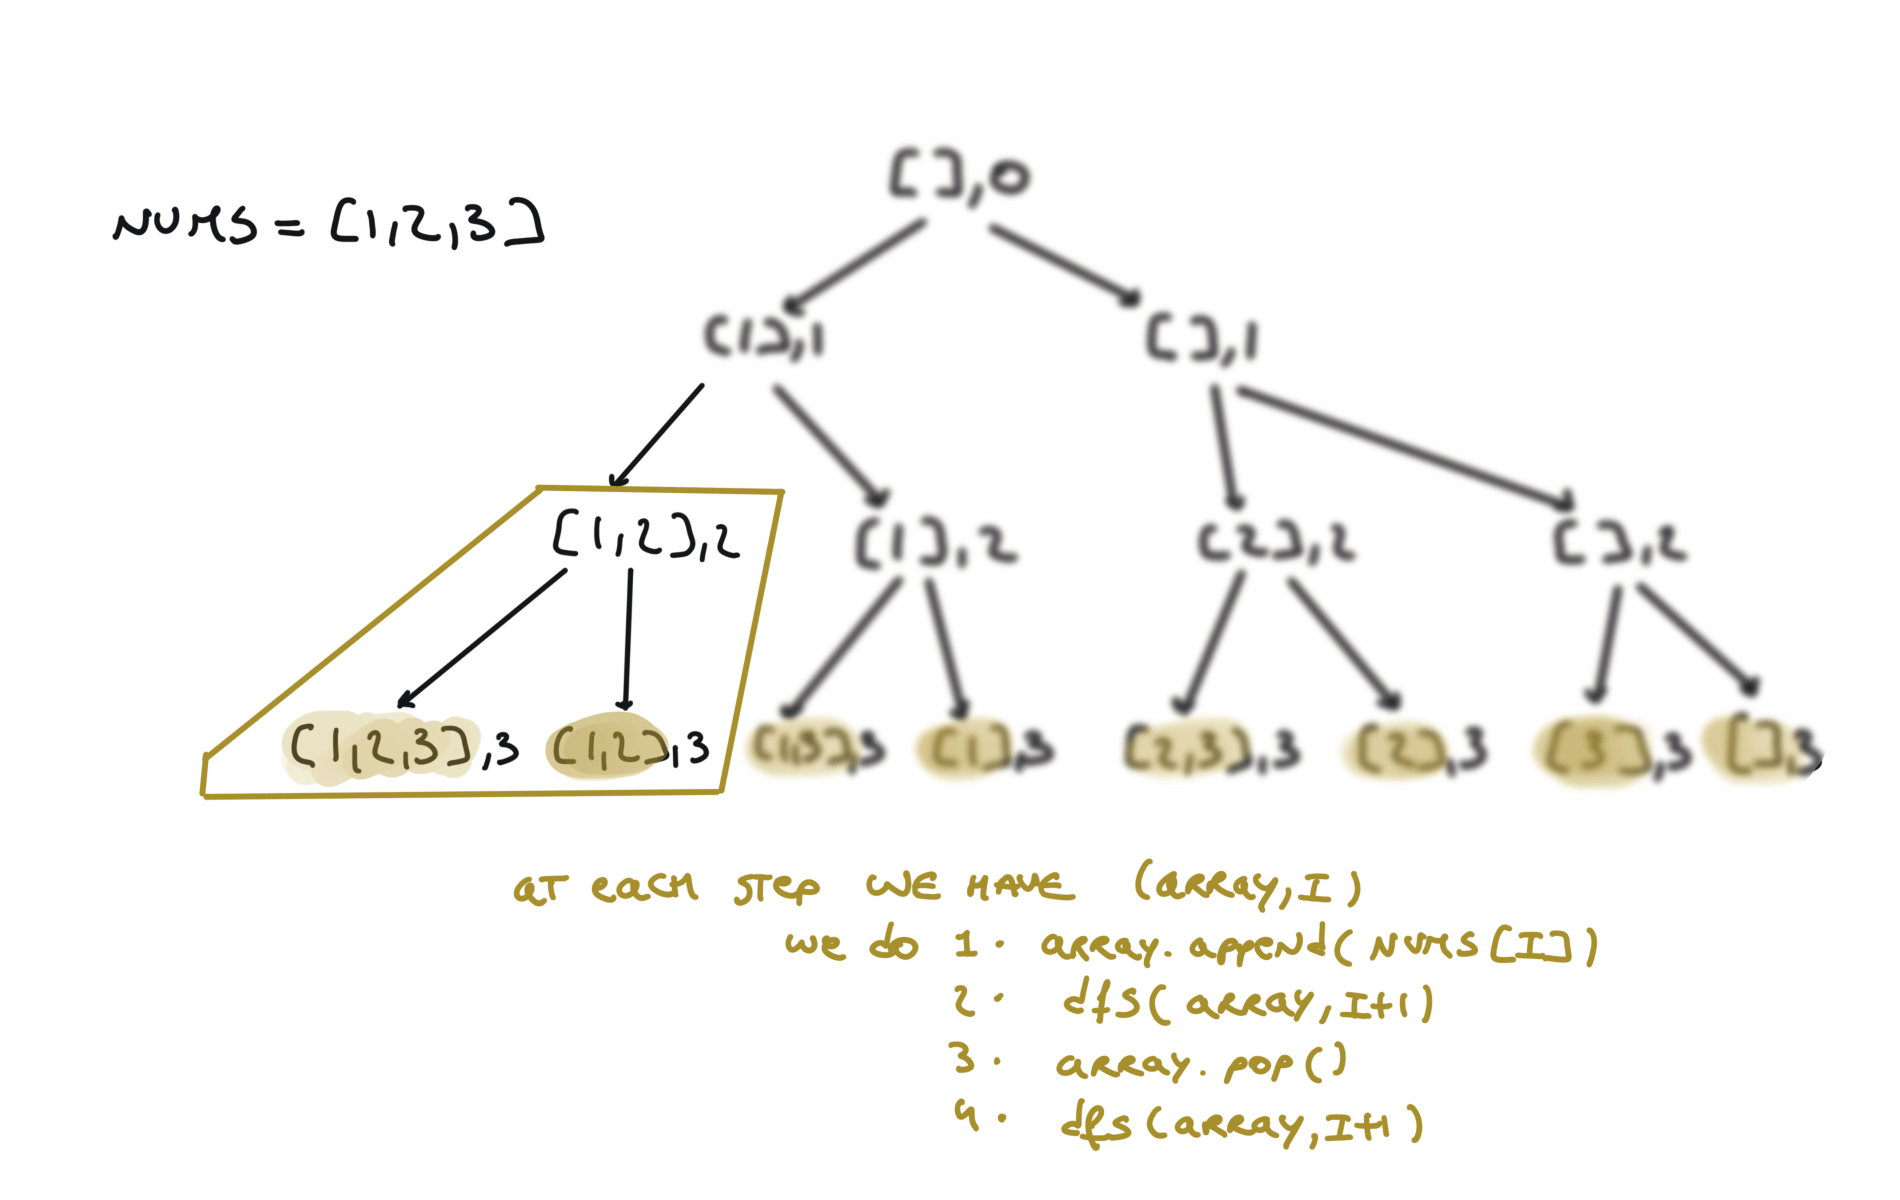 [],0
NUMS = [1,2,3]
[1],1 [],1
[1,2],2 [1],2 [2],2 [],2
[1,2,3],3 [1,2],3 [1,3],3 [1],3 [2,3],3 [2],3 [3],3 [],3
at each step we have (array,I)
we do 1. array.append(NUMS[I])
2. dfs(array,I+1)
3. array.pop()
4. dfs(array,I+1)